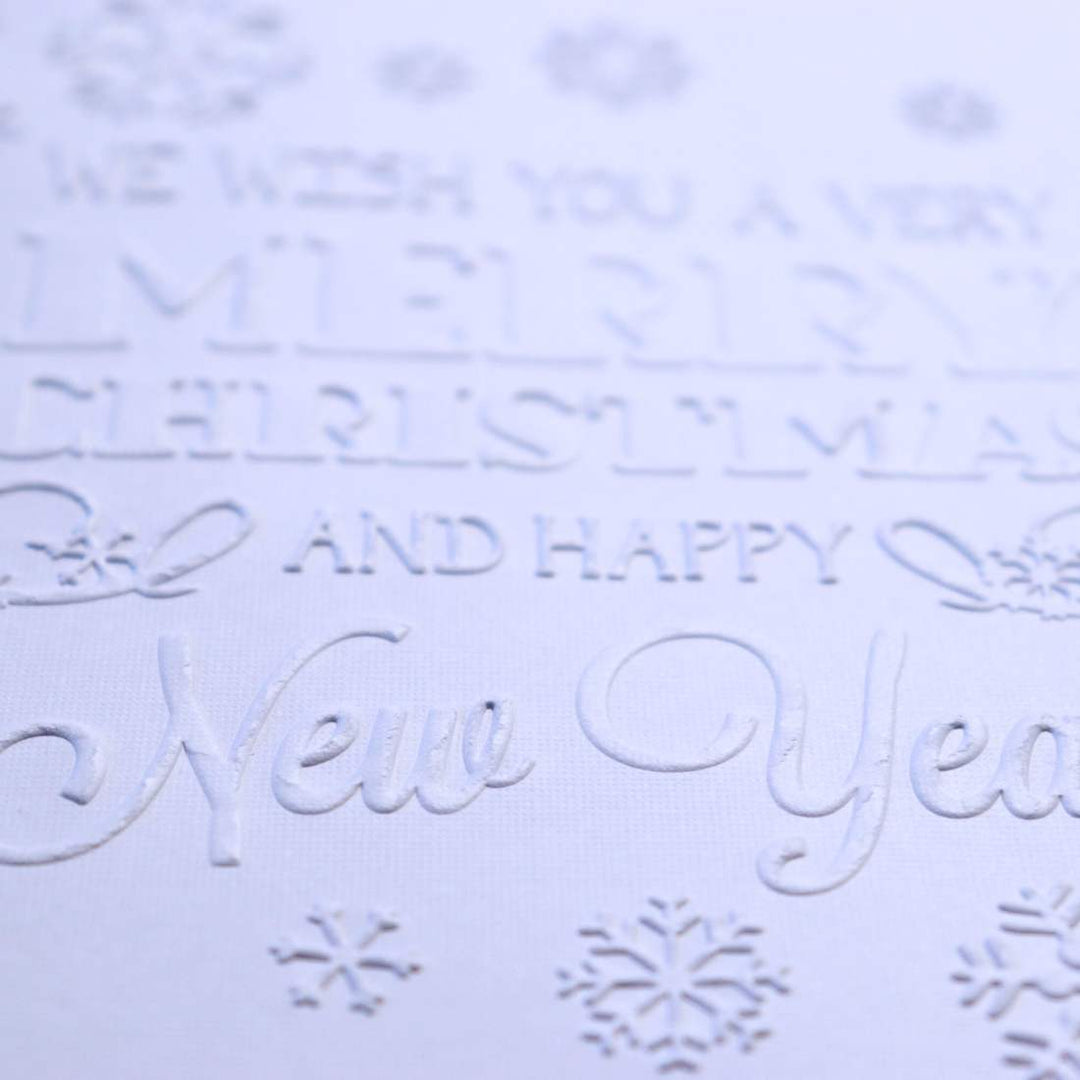 WE WISH YOU A VERY
MERRY
CHRISTMAS
AND HAPPY
New Yea